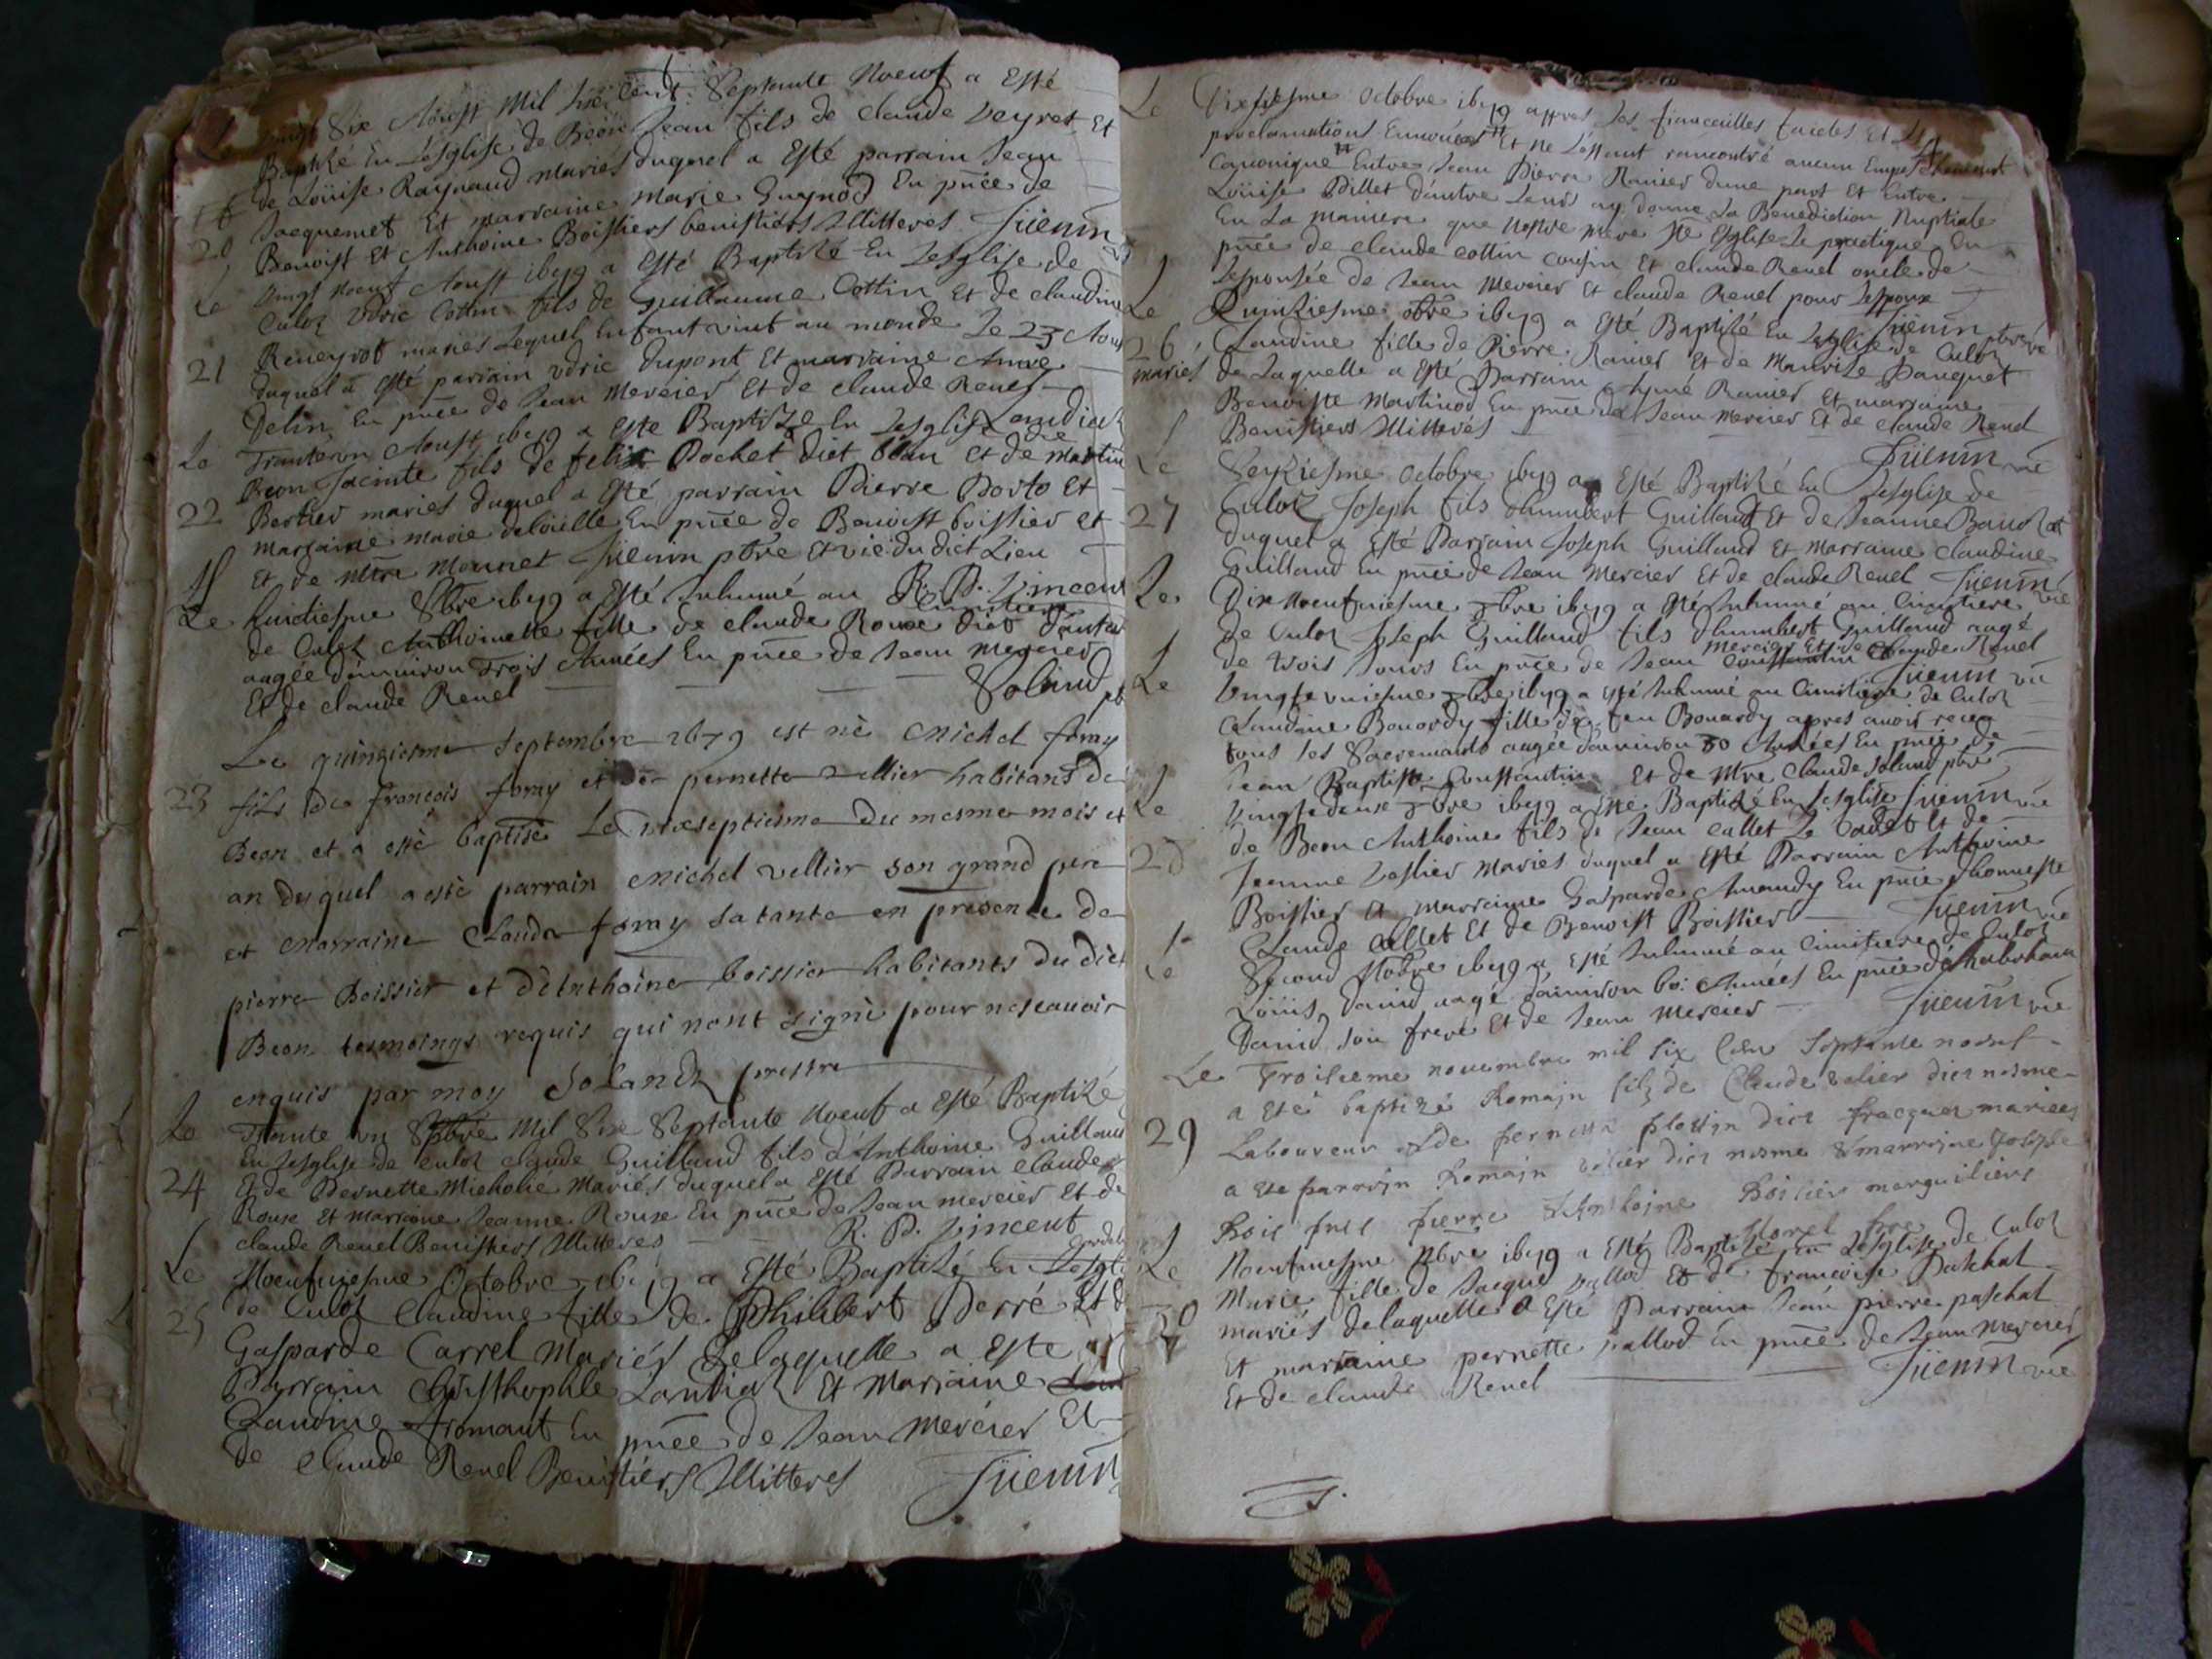 vingt Six Aoust Mil Six Cent Septante Noeuf a Esté
Baptizé En Lesglise de Béon Jean fils de claude veyret Et
de Loüise Raynaud mariés duquel a Esté parrain Jean
20 Jacquemet Et marraine Marie Guynod En pñce de
Benoist Et Anthoine Boissiers benistiers Illitteres Jüenin
Le vingt noeuf Aoust 1679 a Esté Baptizé En Lesglise de
Culoz Vdric Cottin fils de Guillaume Cottin Et de claudine
21 Reneyrot mariés Lequel Enfant vint au monde Le 23 Aoust
duquel a Esté parrain vdric dupont Et marraine Anne
Delin En pñce de Jean Mercier Et de claude Renel
Le Tranteun Aoust 1679 a Esté Baptizé En Lesglise de
Beon Jacinte fils de felix Pochet dict blan et de martine
22 Bertier mariés duquel a Esté parrain Pierre Porto Et
marraine marie deloüille En pñce de Benoist boissier et
Et de Mtre Monnet Jüenin pbre Et vié du dict Lieu
Le huictiesme 8bre 1679 a Esté Inhumé au R. P. Vincent
Cimitiere
de Culoz Anthoinette fille de claude Roux dict
aagée d'environ Trois Années En pñce de Jean Mercier
Et de claude Renel Soland pb
Le quinziesme Septembre 1679 est né Michel foray
23 fils de françois foray et de pernette vellier habitans de
Beon et a esté baptisé Le dixseptiesme du mesme mois et
an duquel a esté parrain Michel vellier son grand pere
et Marraine Clauda foray sa tante en presence de
pierre Boissier et d'Anthoine boissier habitants du dict
Beon tesmoings requis qui nont signé pour ne scauoir
enquis par moy Solandz prestre
Le Trante un 8bre Mil Six Septante Noeuf a Esté Baptizé
En Lesglise de Culoz claude Guilland fils d'Anthoine Guilland
24 Et de Pernette Micholie Mariés duquel a Esté Parrain claude
Roux Et Marraine Jeanne Roux En pñce de Jean mercier Et de
claude Renel Benistiers Illitteres R. P. Vincent
Le Noeufuiesme Octobre 1679 a Esté Baptizé En Lesglise
de Culoz Claudine fille de Philibert Perré Et d
25 Gasparde Carrel Mariés Delaquelle a Esté
Parrain Christhophle Landiaz Et Marraine
Claudine fromant En pñce de Jean Mercier Et
de Claude Renel Benistiers Illitteres Jüenin
Le Dixsiesme Octobre 1679 appres Les fiancailles faictes Et Les
proclamations Et ne Sestant rancontré aucun Empeschement
Canonique Entre Jean Pierre Ranier dune part Et Entre
Loüise Pillet dautre Leurs ay donné La Benediction Nuptiale
En La maniere que Nostre mere Ste Esglise Le practique En
pñce de claude Cottin Cousin Et claude Renel oncle de
Lespousée de Jean Mercier Et claude Renel pour Lespoux
Jüenin pbre vié
Le Quinziesme 8bre 1679 a Esté Baptizé En Lesglise de Culoz
26 Claudine fille de Pierre Ranier Et de Maurize Pauquet
mariés de Laquelle a Esté Parrain Aymé Ranier Et marraine
Benoiste Martinod En pñce de Jean Mercier Et de claude Renel
Benistiers Illitteres Jüenin vié
Le Seiziesme Octobre 1679 a Esté Baptizé En Lesglise de
27 Culoz Joseph fils dhumbert Guilland Et de Jeanne
duquel a Esté Parrain Joseph Guilland Et Marraine Claudine
Guilland En pñce de Jean Mercier Et de claude Renel Jüenin vié
Le Dix Noeufuiesme 8bre 1679 a Esté Inhumé au Cimitiere
de Culoz Joseph Guilland fils dhumbert Guilland aagé
de trois Jours En pñce de Jean Mercier Et de claude Renel
Jüenin vié
Le Vingtevniesme 8bre 1679 a Esté Inhumé au Cimitiere de Culoz
Claudine Bonardy fille de feu Bonardy apres auoir receu
tous les Sacremants aagée d'environ 80 Années En pñce de
Jean Baptiste Constantin Et de Mtre Claude Soland pbre
Jüenin vié
Le Vingtedeux 8bre 1679 a Esté Baptizé En Lesglise
28 de Beon Anthoine fils de Jean Callet Le Cadet Et de
Jeanne Mariés duquel a Esté Parrain Anthoine
Boissier Et Marraine Gasparde En pñce dhonneste
Claude Callet Et de Benoist Boissier Jüenin vié
Le Second Nobre 1679 a Esté Inhumé au Cimitiere de Culoz
Loüis David aagé d'environ 60 Années En pñce
David son frere Et de Jean Mercier Jüenin vié
Le Troisieme nouembre mil six Cen Septante noeuf
a esté baptizé Romain filz de Claude velier dict nosme
29 Laboureur & de pernette plottin dict fracquet mariees
a este parrain Romain velier dict nosme & marraine
pierre & Antoine Boisier marguiliers
Morel pre
Le Noeufuiesme Nbre 1679 a Esté Baptizé En Lesglise de Culoz
Marie fille de Jacque vallod Et de francoise Paschal
30 mariés delaquelle a Esté Parrain Jean pierre paschal
Et marraine pernette vallod En pñce de Jean Mercier
Et de claude Renel Jüenin vié